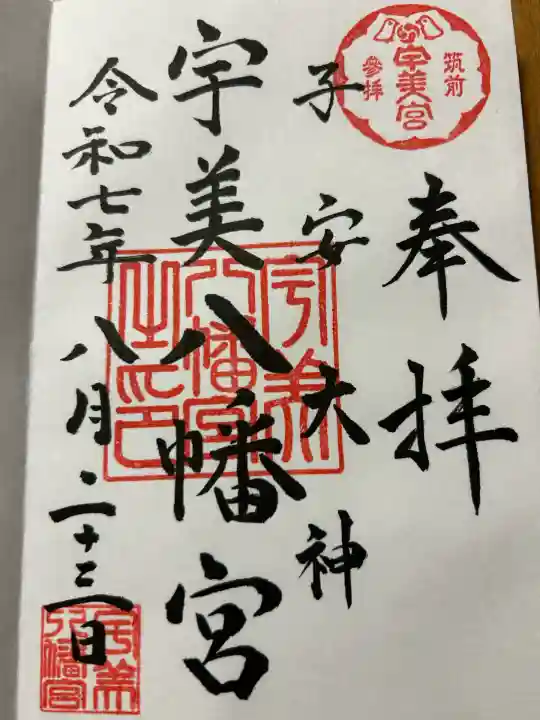 奉拝
筑前
宇美宮
參拝
子安大神
宇美八幡宮
宇美
八幡宮
之印
令和七年八月二十三日
宇美
八幡宮